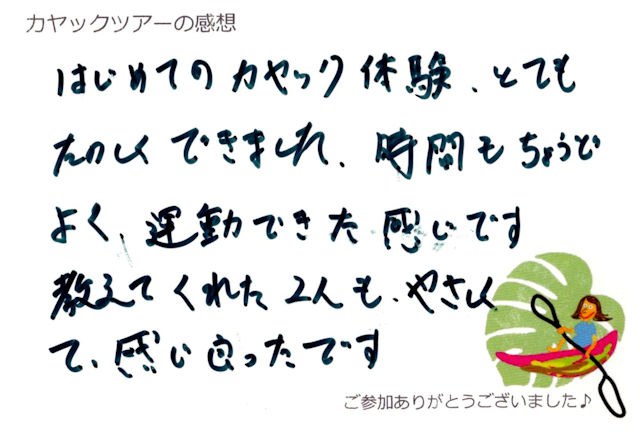 カヤックツアーの感想
はじめてのカヤック体験、とても
たのしくできました、時間もちょうど
よく、運動できた感じです
教えてくれた2人も、やさしく
て、感じ良ったです
ご参加ありがとうございました♪